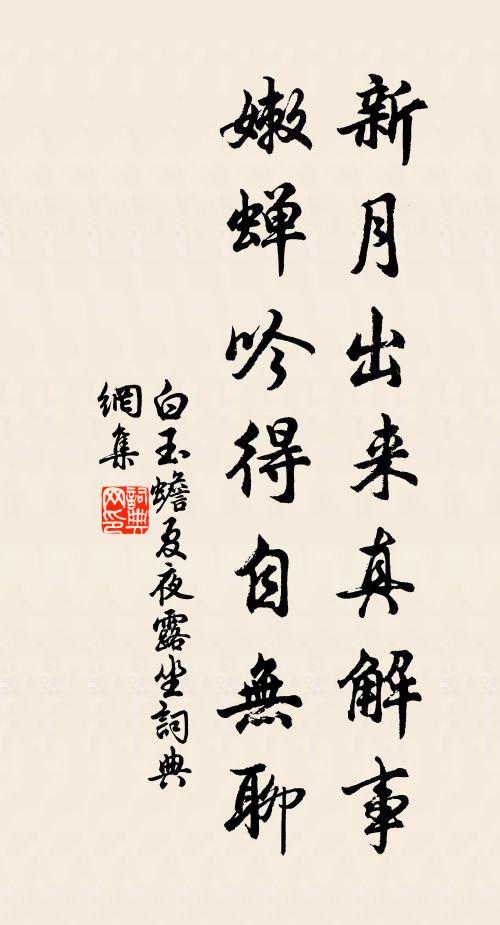 新月出来真解事
嫩蝉吟得自無聊
白玉蟾夏夜露坐詞典
網集
詞典网印